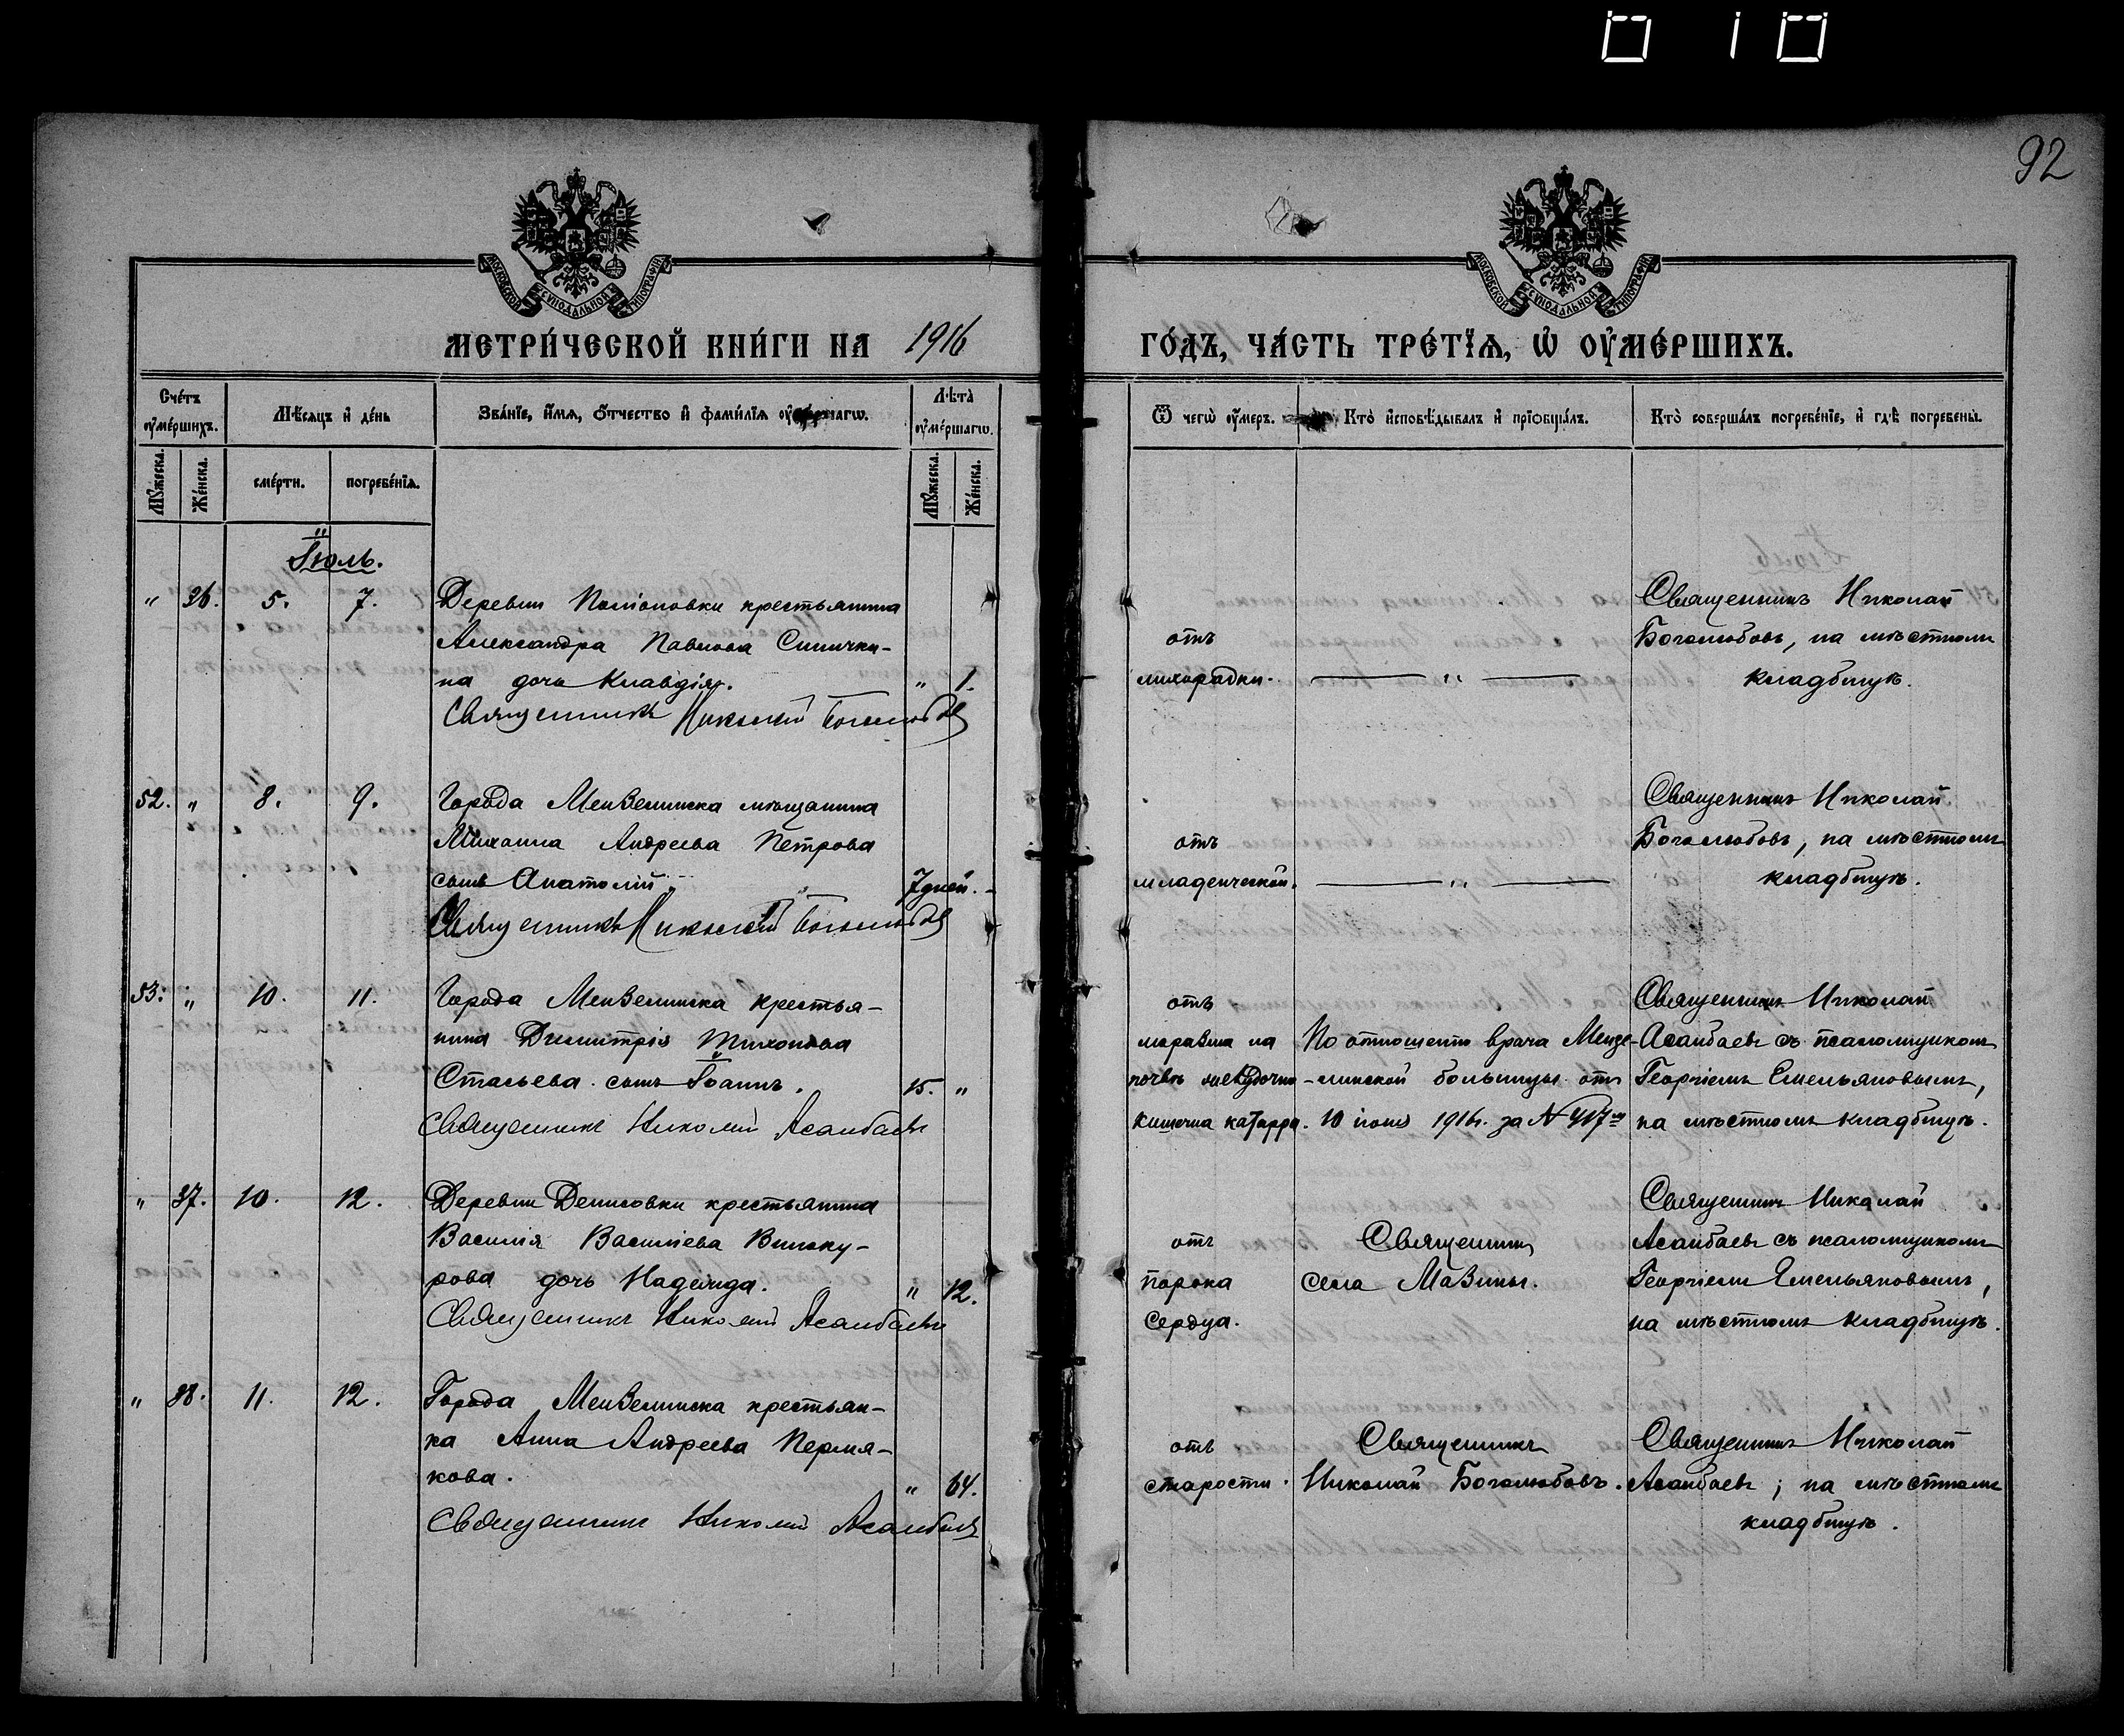 92
МОСКОВСКОЙ СѴНОДАЛЬНОЙ ТИПОГРАФІИ
МОСКОВСКОЙ СѴНОДАЛЬНОЙ ТИПОГРАФІИ
МЕТРИ́ЧЕСКОЙ КНИ́ГИ НА 1916 ГО́ДЪ, ЧА́СТЬ ТРЕ́ТЇѦ, Ѡ҆ ОУ҆МЕ́РШИХЪ.
Сче́тъ оу҆ме́ршихъ.
Мѣ́сяцъ и҆ де́нь
Зва́нїе, и҆́мя, ѻ҆́тчество и҆ фами́лїя
Лѣ́та оу҆ме́ршагѡ.
Ѿ чегѡ̀ оу҆́меръ.
Кто̀ и҆сповѣ́дывалъ и҆ прїѡбща́лъ.
Кто̀ соверша́лъ погребе́нїе, и҆ гдѣ̀ погребены̀.
Мꙋ́жеска.
Же́нска.
сме́рти.
погребе́нїя.
Мꙋ́жеска.
Же́нска.
Іюль.
" 36. 5. 7. Деревни крестьянина
Александра Павлова Синички-
на дочь Клавдія. " 1.
Священникъ Николай Боголюбовъ
отъ
лихорадки. — " —
Священникъ Николай
Боголюбовъ, на мѣстномъ
кладбищѣ.
52. " 8. 9. Города Мензелинска мѣщанина
Михаила Андреева Петрова
сынъ Анатолій. 7 дней. -
Священникъ Николай Боголюбовъ
отъ
младенческой. — " —
Священникъ Николай
Боголюбовъ, на мѣстномъ
кладбищѣ.
53. " 10. 11. Города Мензелинска крестья-
нина Димитрія Тихонова
сынъ Іоаннъ. 15. "
Священникъ Николай Асанбаевъ
отъ
маразма на
почвѣ желудочно
кишечна катарра.
По отношенію врача Мензе-
линской больницы отъ
10 іюля 1916 г. за №
Священникъ Николай
Асанбаевъ съ псаломщикомъ
Георгіемъ Емельяновымъ,
на мѣстномъ кладбищѣ.
" 37. 10. 12. Деревни Денисовки крестьянина
Василія Васильева Виноку-
рова дочь Надежда. " 12.
Священникъ Николай Асанбаевъ
отъ
порока
сердца.
Священникъ
села Мазины.
Священникъ Николай
Асанбаевъ съ псаломщикомъ
Георгіемъ Емельяновымъ,
на мѣстномъ кладбищѣ.
" 38. 11. 12. Города Мензелинска крестьян-
ка Анна Андреева Пермя-
кова. " 64.
Священникъ Николай Асанбаевъ
отъ
старости.
Священникъ
Николай Боголюбовъ.
Священникъ Николай
Асанбаевъ; на мѣстномъ
кладбищѣ.